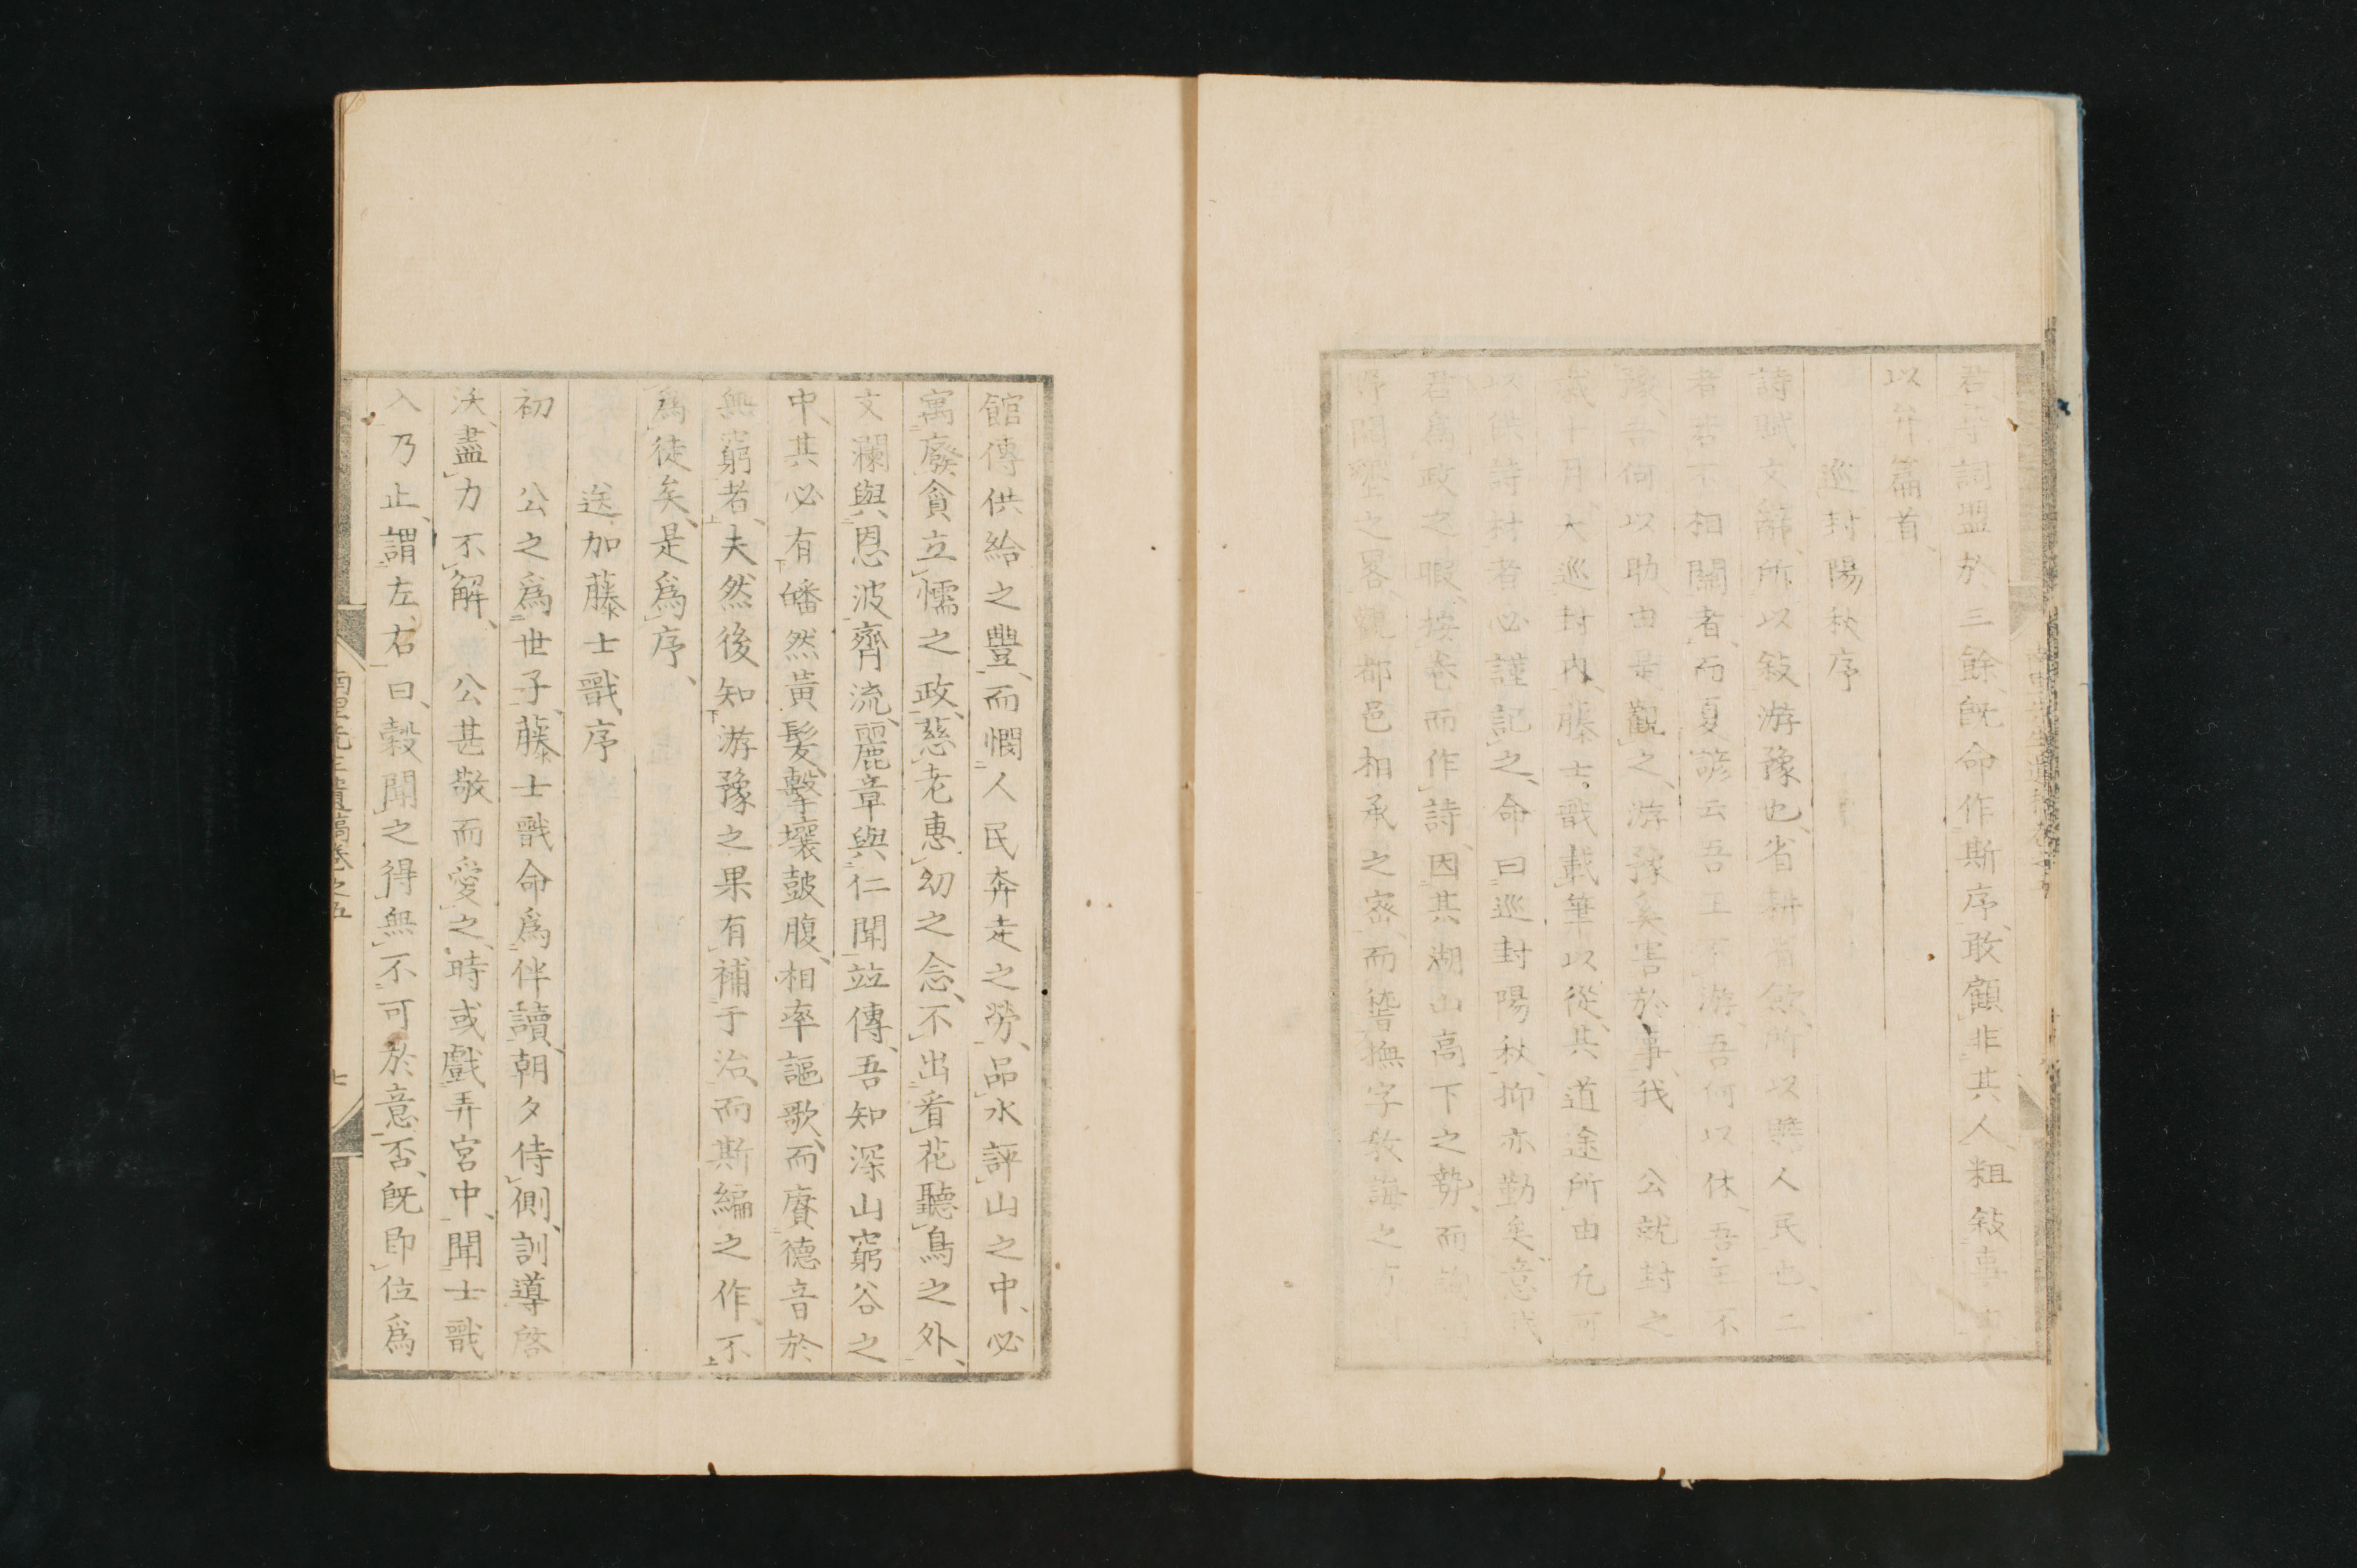 君、詞盟於三餘、既命作斯序、敢顧非其人、粗敍事由
以弁篇首、
巡封陽秋序
詩賦文辭、所以敍游豫也、省耕省斂、所以贍人民也、二
者若不相關者、而夏諺云吾王不游、吾何以休、吾王不
豫、吾何以助、由是觀之、游豫奚害於事、我　公就封之
歲十月、大巡封內、藤士戬載筆以從、其道途所由、凡可
以供詩材者、必謹記之、命曰巡封陽秋、抑亦勤矣、意我
君爲政之暇、按卷而作詩、因其湖山高下之勢、而
之畧、都邑相承之密、而撫字敎誨之方
館傳供給之豐、而憫人民奔走之勞、品水評山之中、必
寓廢貪立懦之政、慈老惠幼之念、不出看花聽鳥之外、
文瀾與恩波齊流、麗章與仁聞竝傳、吾知深山窮谷之
中、其必有皤然黃髮、擊壤鼓腹、相率謳歌、而賡德音於
無窮者、夫然後知游豫之果有補于治、而斯編之作、不
爲徒矣、是爲序、
送加藤士戬序
初　公之爲世子、藤士戬命爲伴讀、朝夕侍側、訓導啓
沃、盡力不解、公甚敬而愛之、時或戲弄宮中、聞士戬
入乃止、謂左右曰、穀聞之、得無不可於意否、既卽位爲
南里先生遺稿卷之五
七